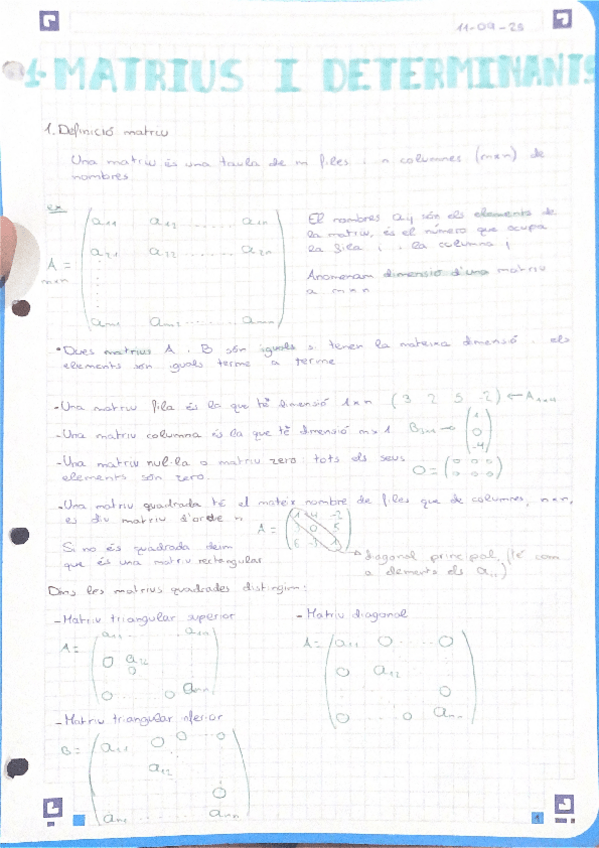 11-09-25
1. MATRIUS I DETERMINANTS
1. Definició matriu
Una matriu és una taula de m files i n columnes (m×n) de
nombres
ex
A = m×n
a11 a12 ...... a1n
a21 a22 ...... a2n
am1 am2 ...... amn
El nombres aij són els elements de
la matriu, és el número que ocupa
la fila i i la columna j
Anomenam dimensió d'una matriu
a m×n
• Dues matrius A i B són iguals si tenen la mateixa dimensió i els
elements són iguals terme a terme
- Una matriu fila és la que té dimensió 1×n (3 2 5 -2) ← A1×4
- Una matriu columna és la que té dimensió m×1 B3×1 → (1 0 -4)
- Una matriu nul·la o matriu zero: tots els seus
elements són zero.
O = (0 0 0
0 0 0)
- Una matriu quadrada té el mateix nombre de files que de columnes, n×n,
es diu matriu d'ordre n
A =
Si no és quadrada deim
que és una matriu rectangular
diagonal principal (té com
a elements els aii)
Dins les matrius quadrades distingim:
- Matriu triangular superior
A =
a11 ..... a1n
0 a22
0
0 ..... 0 ann
- Matriu diagonal
A =
a11 0 ..... 0
0 a22
0
0 ... 0 ann
- Matriu triangular inferior
B =
a11 0 0 ... 0
a22
0
an1 ann
1